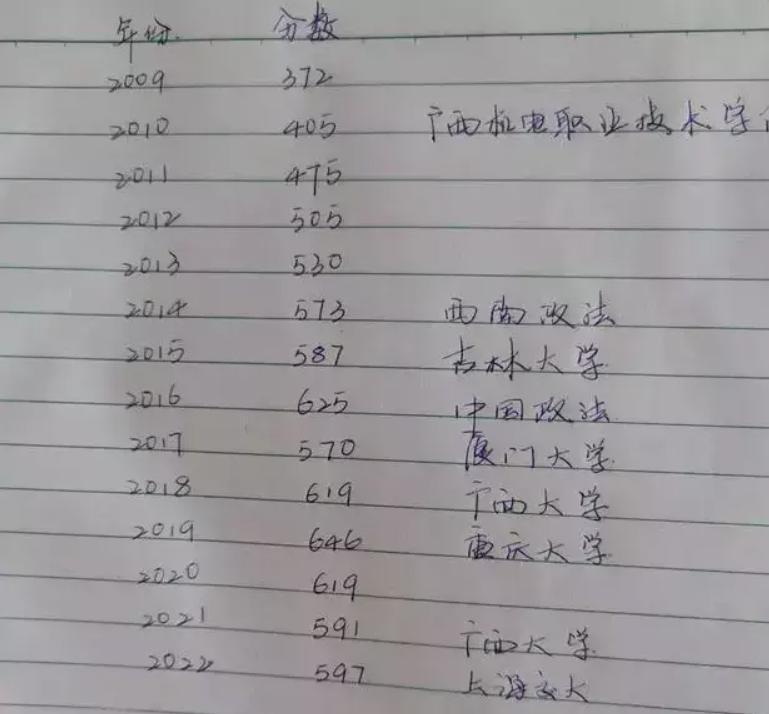 年份 分数
2009 372
2010 405 广西机电职业技术学
2011 475
2012 505
2013 530
2014 573 西南政法
2015 587 吉林大学
2016 625 中国政法
2017 570 厦门大学
2018 619 广西大学
2019 646 重庆大学
2020 619
2021 591 广西大学
2022 597 上海交大